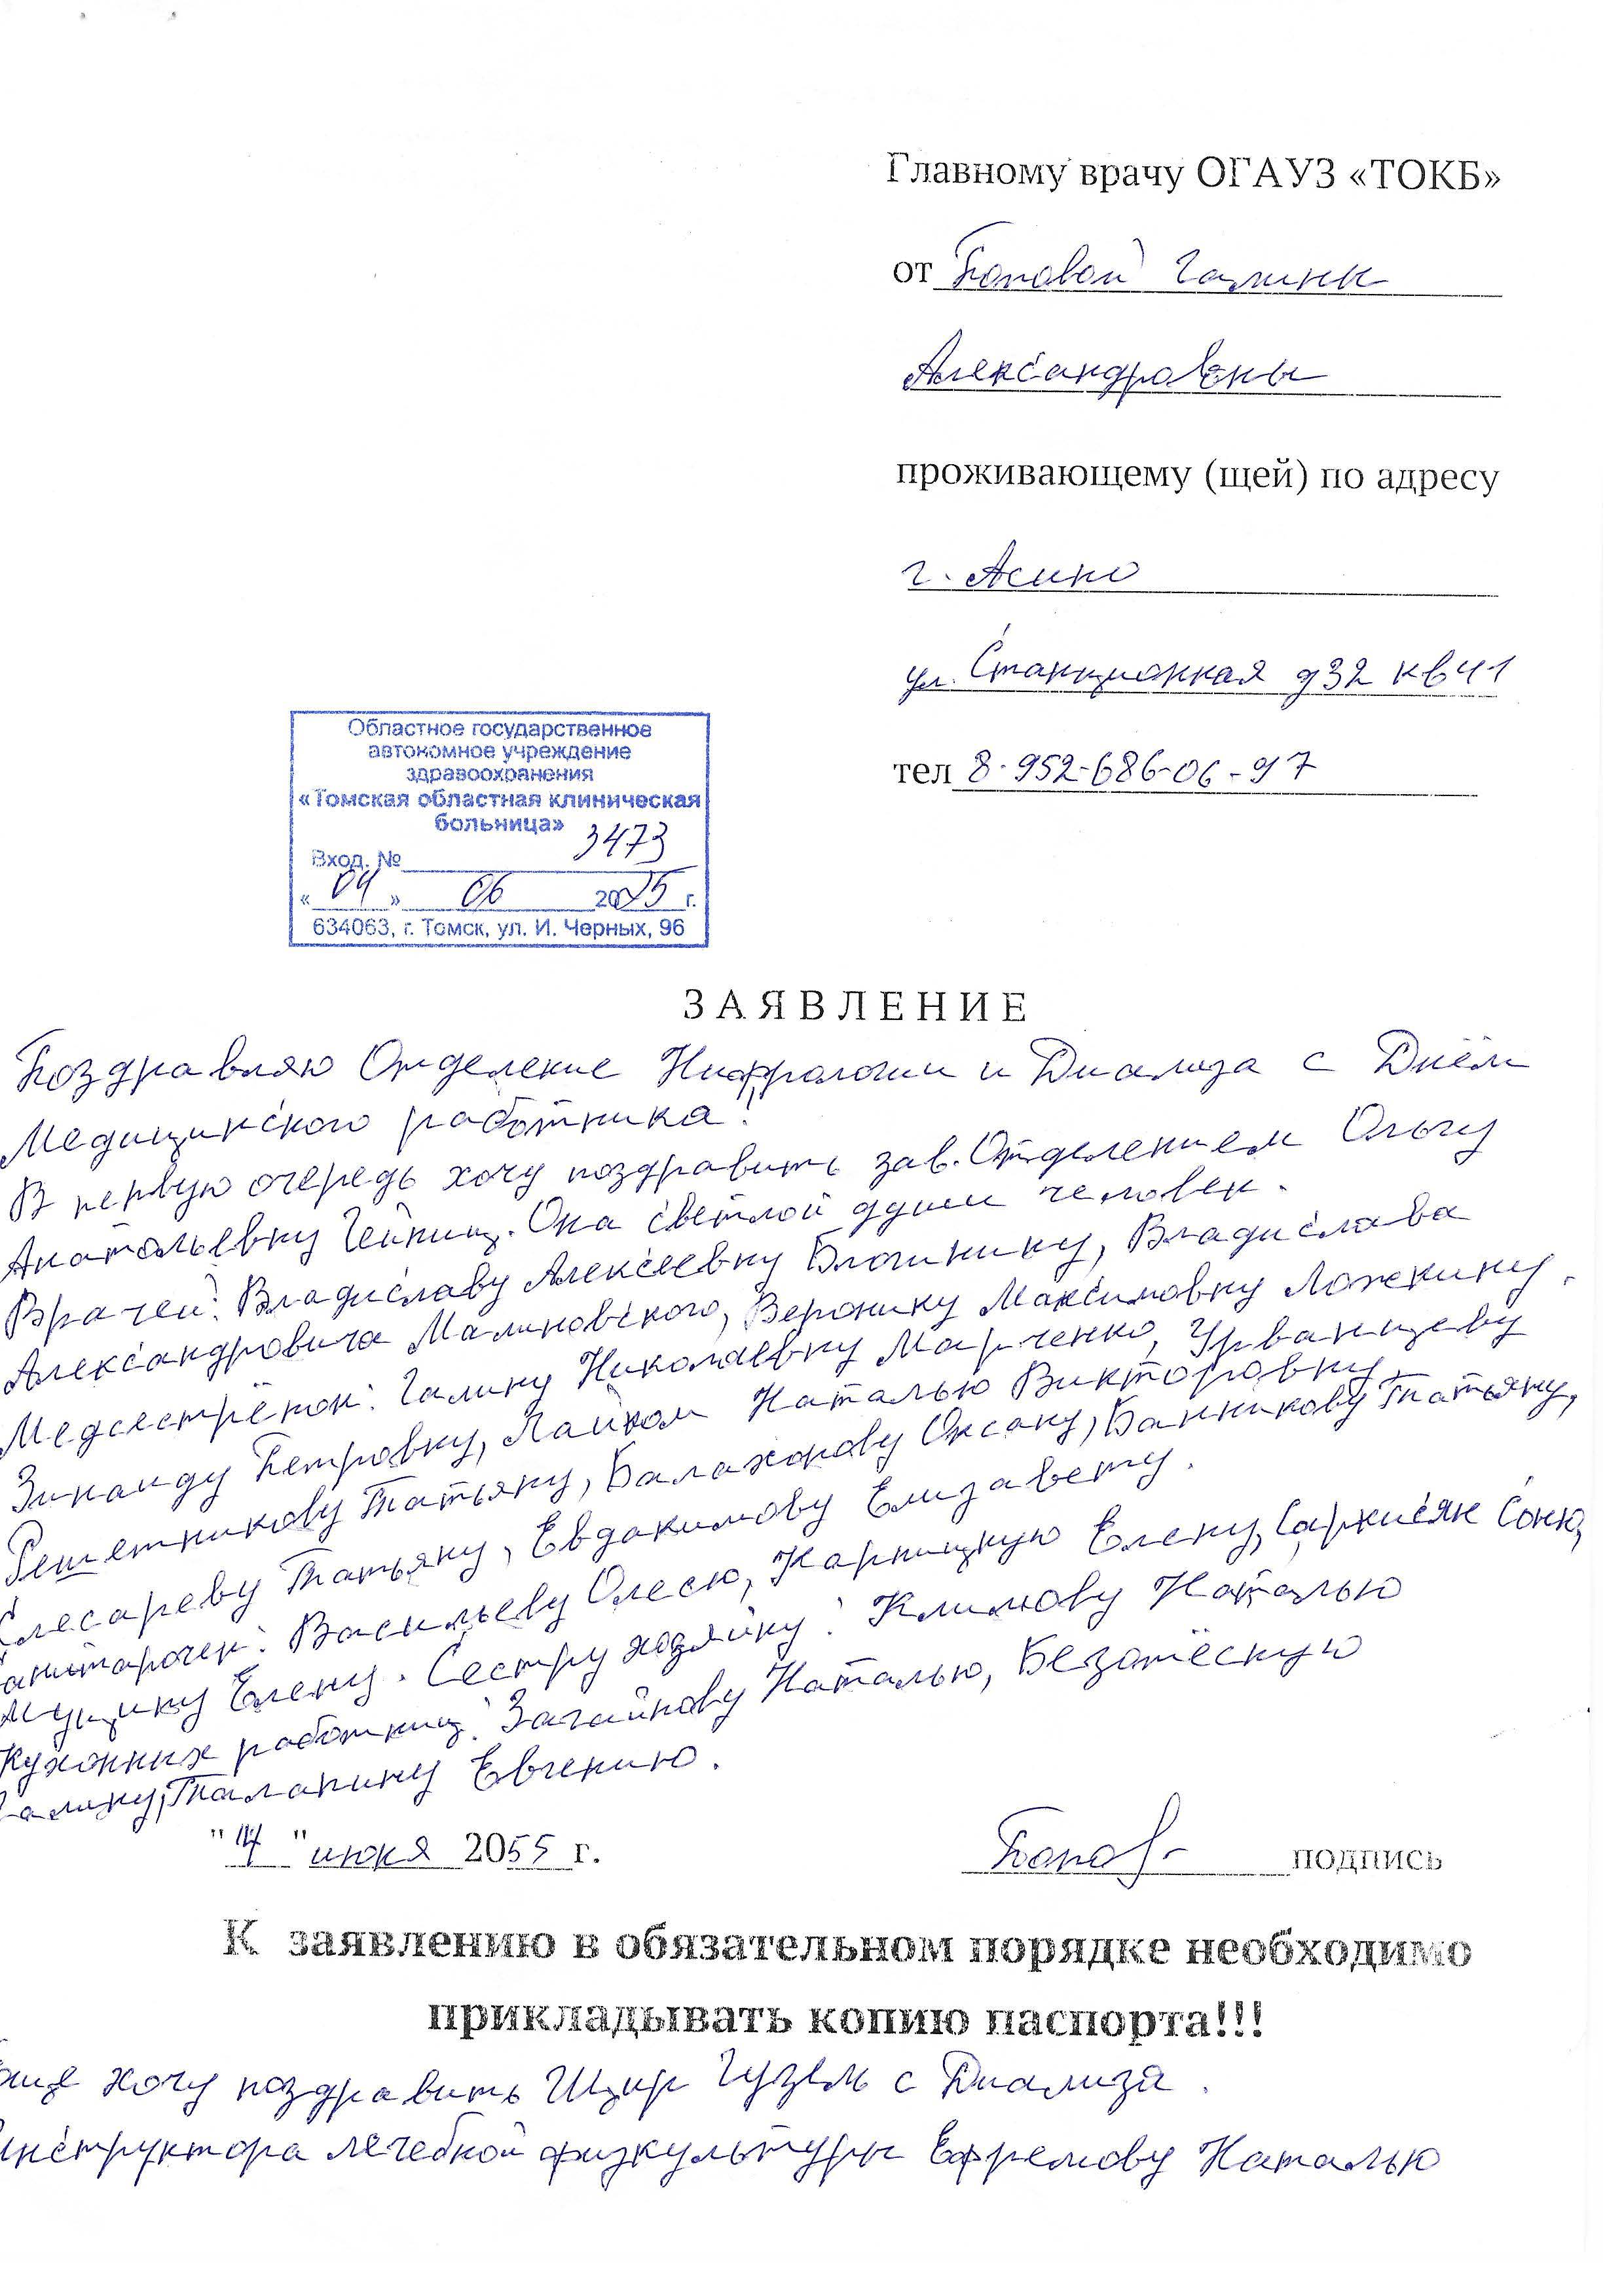 Главному врачу ОГАУЗ «ТОКБ»
от Поповой Галины
Александровны
проживающему (щей) по адресу
г. Асино
ул. Станционная д32 кв41
тел 8-952-686-06-97
Областное государственное
автономное учреждение
здравоохранения
«Томская областная клиническая
больница»
Вход. № 3473
«04» 06 2025 г.
634063, г. Томск, ул. И. Черных, 96
ЗАЯВЛЕНИЕ
Поздравляю Отделение Нифрологии и Диализа с Днём
Медицинского работника!
В первую очередь хочу поздравить зав. Отделением Ольгу
Анатольевну Гейниц. Она светлой души человек.
Врачей: Владиславу Алексеевну Блошкину, Владислава
Александровича Малиновского, Веронику Максимовну Ложкину.
Медсестрёнок: Галину Николаевну Марченко, Урванцеву
Зинаиду Петровну, Лайком Наталью Викторовну,
Решетникову Татьяну, Балахонову Оксану, Банникову Татьяну,
Слесареву Татьяну, Евдакимову Елизавету.
Санитарочек: Васильеву Олесю, Карпицкую Елену, Саркисян Соню,
Мущину Елену. Сестру хозяйку: Климову Наталью
Кухонных работниц: Загайнову Наталью, Безотёскую
Галину, Талапину Евгению.
"4" июня 2055 г.
Попов подпись
К заявлению в обязательном порядке необходимо
прикладывать копию паспорта!!!
Еще хочу поздравить Щир Гузель с Диализа.
Инструктора лечебной физкультуры Ефремову Наталью